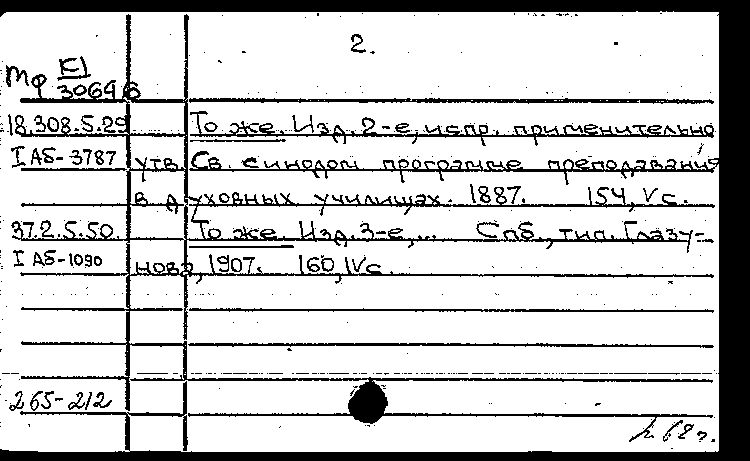 2.
Мф К1
30646
18.308.5.29 То же. Изд. 2-е, испр. применительно
I АБ-3787 утв. Св. синодом программе преподавания
в духовных училищах. 1887. 154, V с.
37.2.5.50. То же. Изд. 3-е,... Спб., тип. Глазу-
I АБ-1090 нова, 1907. 160, IV с.
265-212